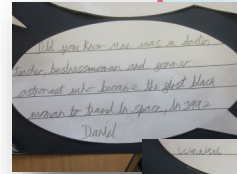 Did you know Mae was a doctor
teacher, businesswoman and former
astronaut who became the first black
woman to travel in space, in 1992
Daniel